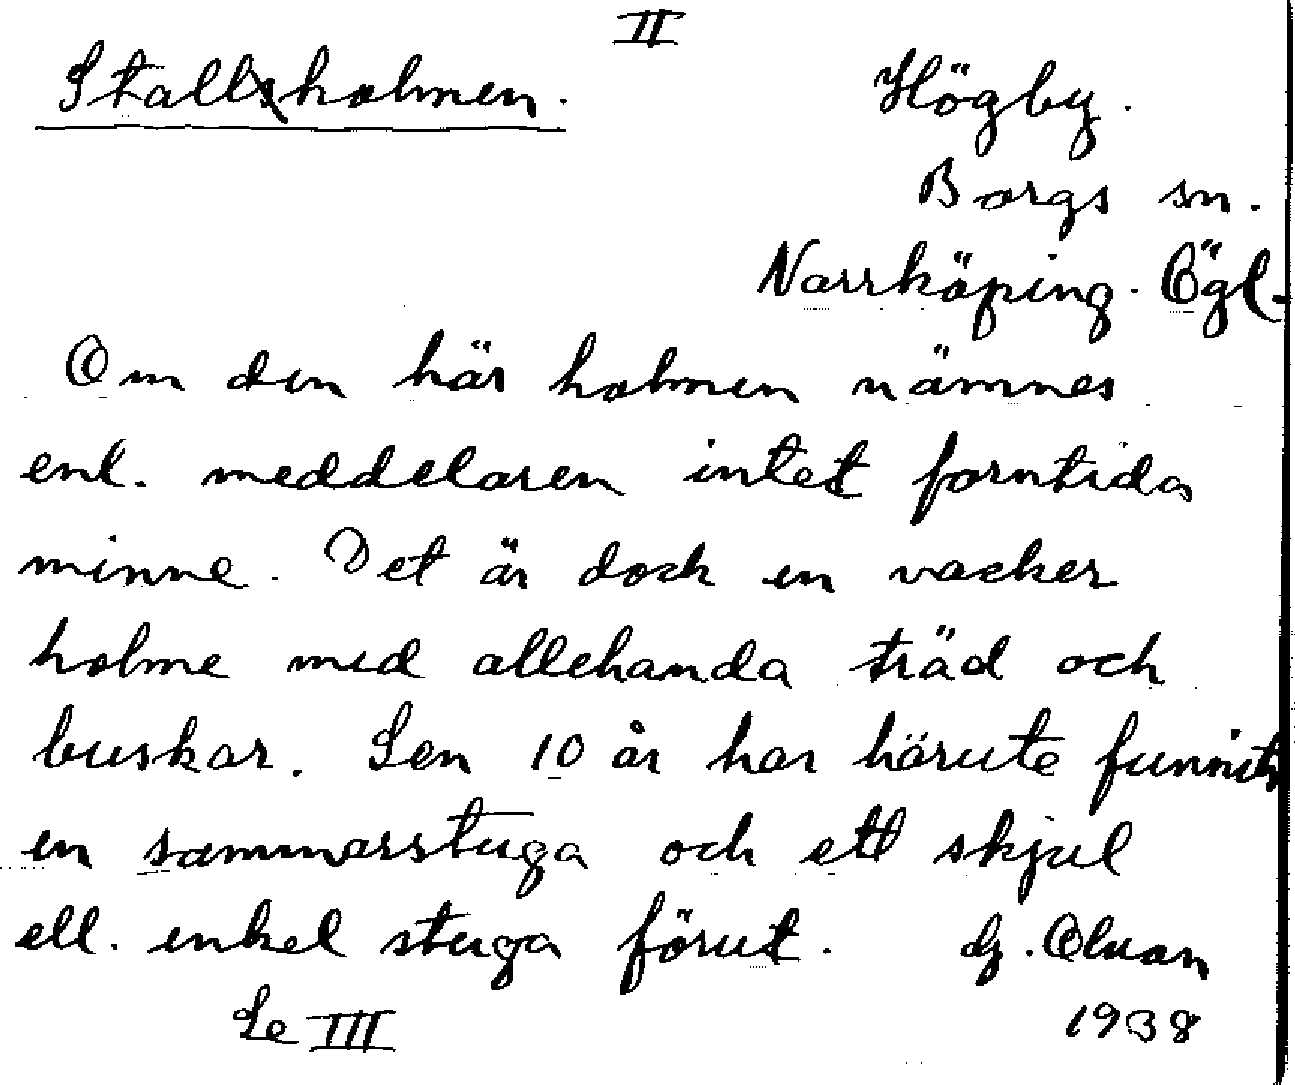 II
Stallholmen.
Högby.
Borgs sn.
Norrköping. Ögl.
Om den här holmen nämnes
enl. meddelaren intet forntida
minne. Det är dock en vacker
holme med allehanda träd och
buskar. Sen 10 år har härute funnits
en sommarstuga och ett skjul
ell. enkel stuga förut.
1938
Se III